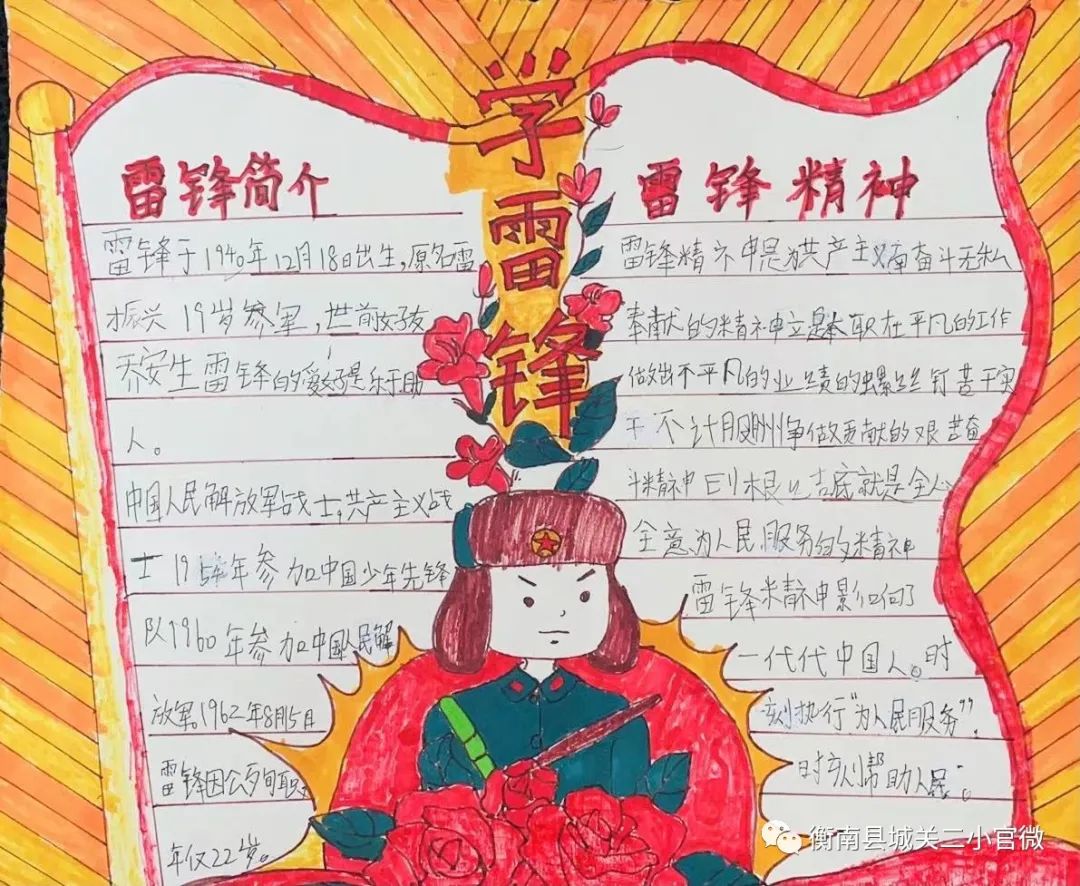 学雷锋
雷锋简介
雷锋于1940年12月18日出生,原名雷
振兴 19岁参军,世前女子友
乔安生雷锋的爱好是乐于助
人。
中国人民解放军战士,共产主义战
士 1954年参加中国少年先锋
队1960年参加中国人民解
放军1962年8月5日
雷锋因公殉职,
年仅22岁。
雷锋精神
雷锋精神是为共产主义而奋斗无私
奉献的精神立是本职在平凡的工作
做出不平凡的业绩的螺丝钉苦干实
干不计 争做贡献的艰苦奋
斗精神归根 底就是全心
全意为人民服务的精神
雷锋精神影响了
一代代中国人。时
刻执行"为人民服务",
时刻帮助人民。
衡南县城关二小官微